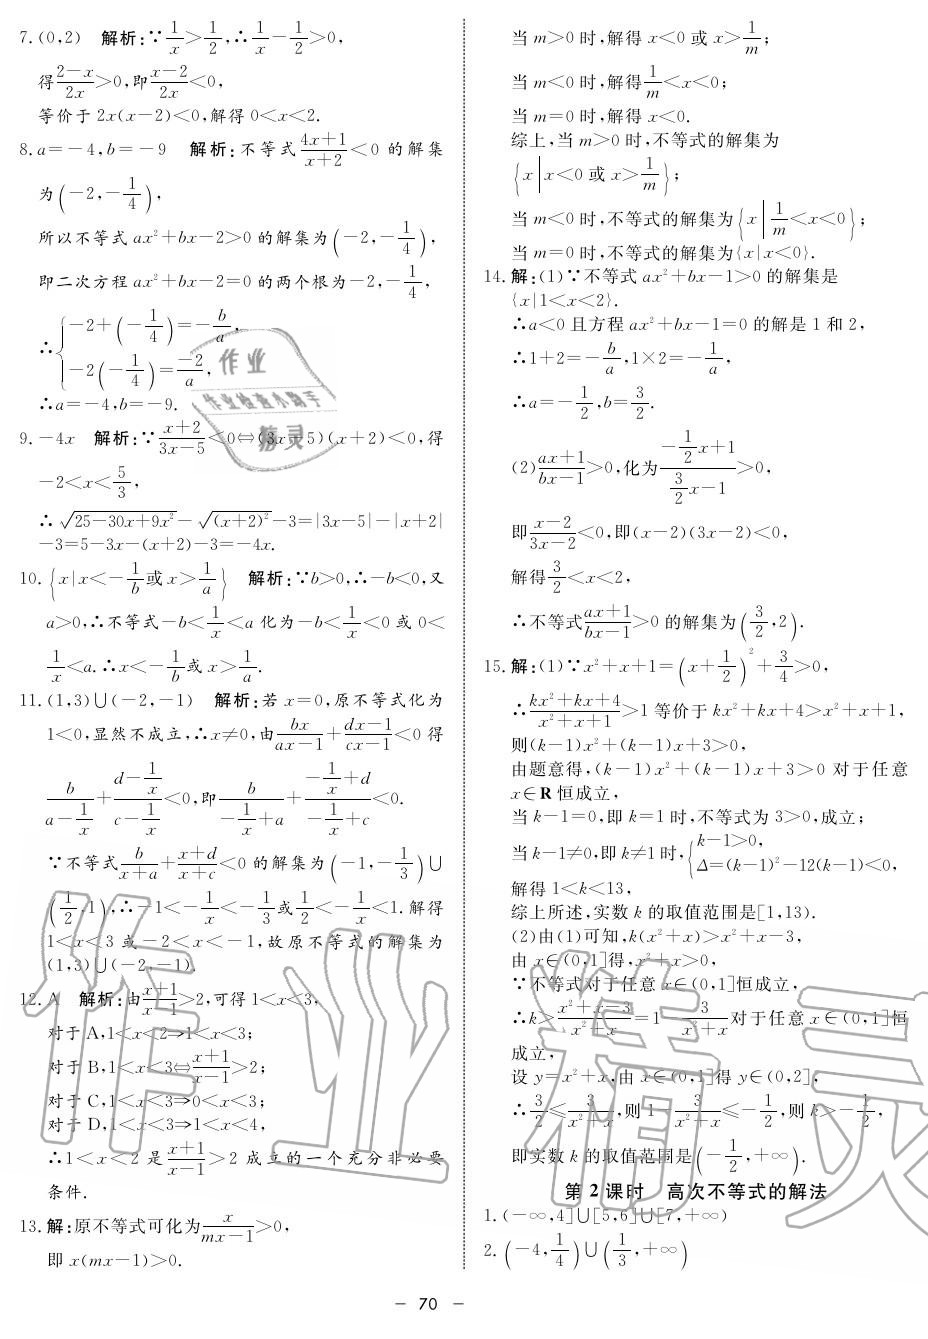 7.(0,2)　解析:∵1/x>1/2,∴1/x−1/2>0,
得(2−x)/(2x)>0,即(x−2)/(2x)<0,
等价于 2x(x−2)<0,解得 0<x<2.
8.a=−4,b=−9　解析:不等式(4x+1)/(x+2)<0 的解集
为(−2,−1/4),
所以不等式 ax²+bx−2>0 的解集为(−2,−1/4),
即二次方程 ax²+bx−2=0 的两个根为−2,−1/4,
∴{−2+(−1/4)=−b/a,
−2(−1/4)=−2/a,
∴a=−4,b=−9.
9.−4x　解析:∵(x+2)/(3x−5)<0⇔(3x−5)(x+2)<0,得
−2<x<5/3,
∴√(25−30x+9x²)−√((x+2)²)−3=|3x−5|−|x+2|
−3=5−3x−(x+2)−3=−4x.
10.{x|x<−1/b或 x>1/a}　解析:∵b>0,∴−b<0,又
a>0,∴不等式−b<1/x<a 化为−b<1/x<0 或 0<
1/x<a.∴x<−1/b或 x>1/a.
11.(1,3)∪(−2,−1)　解析:若 x=0,原不等式化为
1<0,显然不成立,∴x≠0,由bx/(ax−1)+(dx−1)/(cx−1)<0 得
b/(a−1/x)+(d−1/x)/(c−1/x)<0,即b/(−1/x+a)+(−1/x+d)/(−1/x+c)<0.
∵不等式b/(x+a)+(x+d)/(x+c)<0 的解集为(−1,−1/3)∪
(1/2,1),∴−1<−1/x<−1/3或1/2<−1/x<1.解得
1<x<3 或−2<x<−1,故原不等式的解集为
(1,3)∪(−2,−1).
12.A　解析:由(x+1)/(x−1)>2,可得 1<x<3,
对于 A,1<x<2⇒1<x<3;
对于 B,1<x<3⇔(x+1)/(x−1)>2;
对于 C,1<x<3⇒0<x<3;
对于 D,1<x<3⇒1<x<4,
∴1<x<2 是(x+1)/(x−1)>2 成立的一个充分非必要
条件.
13.解:原不等式可化为x/(mx−1)>0,
即 x(mx−1)>0.
当 m>0 时,解得 x<0 或 x>1/m;
当 m<0 时,解得1/m<x<0;
当 m=0 时,解得 x<0.
综上,当 m>0 时,不等式的解集为
{x|x<0 或 x>1/m};
当 m<0 时,不等式的解集为{x|1/m<x<0};
当 m=0 时,不等式的解集为{x|x<0}.
14.解:(1)∵不等式 ax²+bx−1>0 的解集是
{x|1<x<2}.
∴a<0 且方程 ax²+bx−1=0 的解是 1 和 2,
∴1+2=−b/a,1×2=−1/a,
∴a=−1/2,b=3/2.
(2)(ax+1)/(bx−1)>0,化为(−1/2x+1)/(3/2x−1)>0,
即(x−2)/(3x−2)<0,即(x−2)(3x−2)<0,
解得3/2<x<2,
∴不等式(ax+1)/(bx−1)>0 的解集为(3/2,2).
15.解:(1)∵x²+x+1=(x+1/2)²+3/4>0,
∴(kx²+kx+4)/(x²+x+1)>1 等价于 kx²+kx+4>x²+x+1,
则(k−1)x²+(k−1)x+3>0,
由题意得,(k−1)x²+(k−1)x+3>0 对于任意
x∈R 恒成立,
当 k−1=0,即 k=1 时,不等式为 3>0,成立;
当 k−1≠0,即 k≠1 时,{k−1>0,
Δ=(k−1)²−12(k−1)<0,
解得 1<k<13,
综上所述,实数 k 的取值范围是[1,13).
(2)由(1)可知,k(x²+x)>x²+x−3,
由 x∈(0,1]得,x²+x>0,
∵不等式对于任意 x∈(0,1]恒成立,
∴k>(x²+x−3)/(x²+x)=1−3/(x²+x)对于任意 x∈(0,1]恒
成立,
设 y=x²+x,由 x∈(0,1]得 y∈(0,2],
∴3/2≤3/(x²+x),则 1−3/(x²+x)≤−1/2,则 k>−1/2,
即实数 k 的取值范围是(−1/2,+∞).
第 2 课时　高次不等式的解法
1.(−∞,4]∪[5,6]∪[7,+∞)
2.(−4,1/4)∪(1/3,+∞)
− 70 −
作业
作业检查小助手
精灵
作业精灵